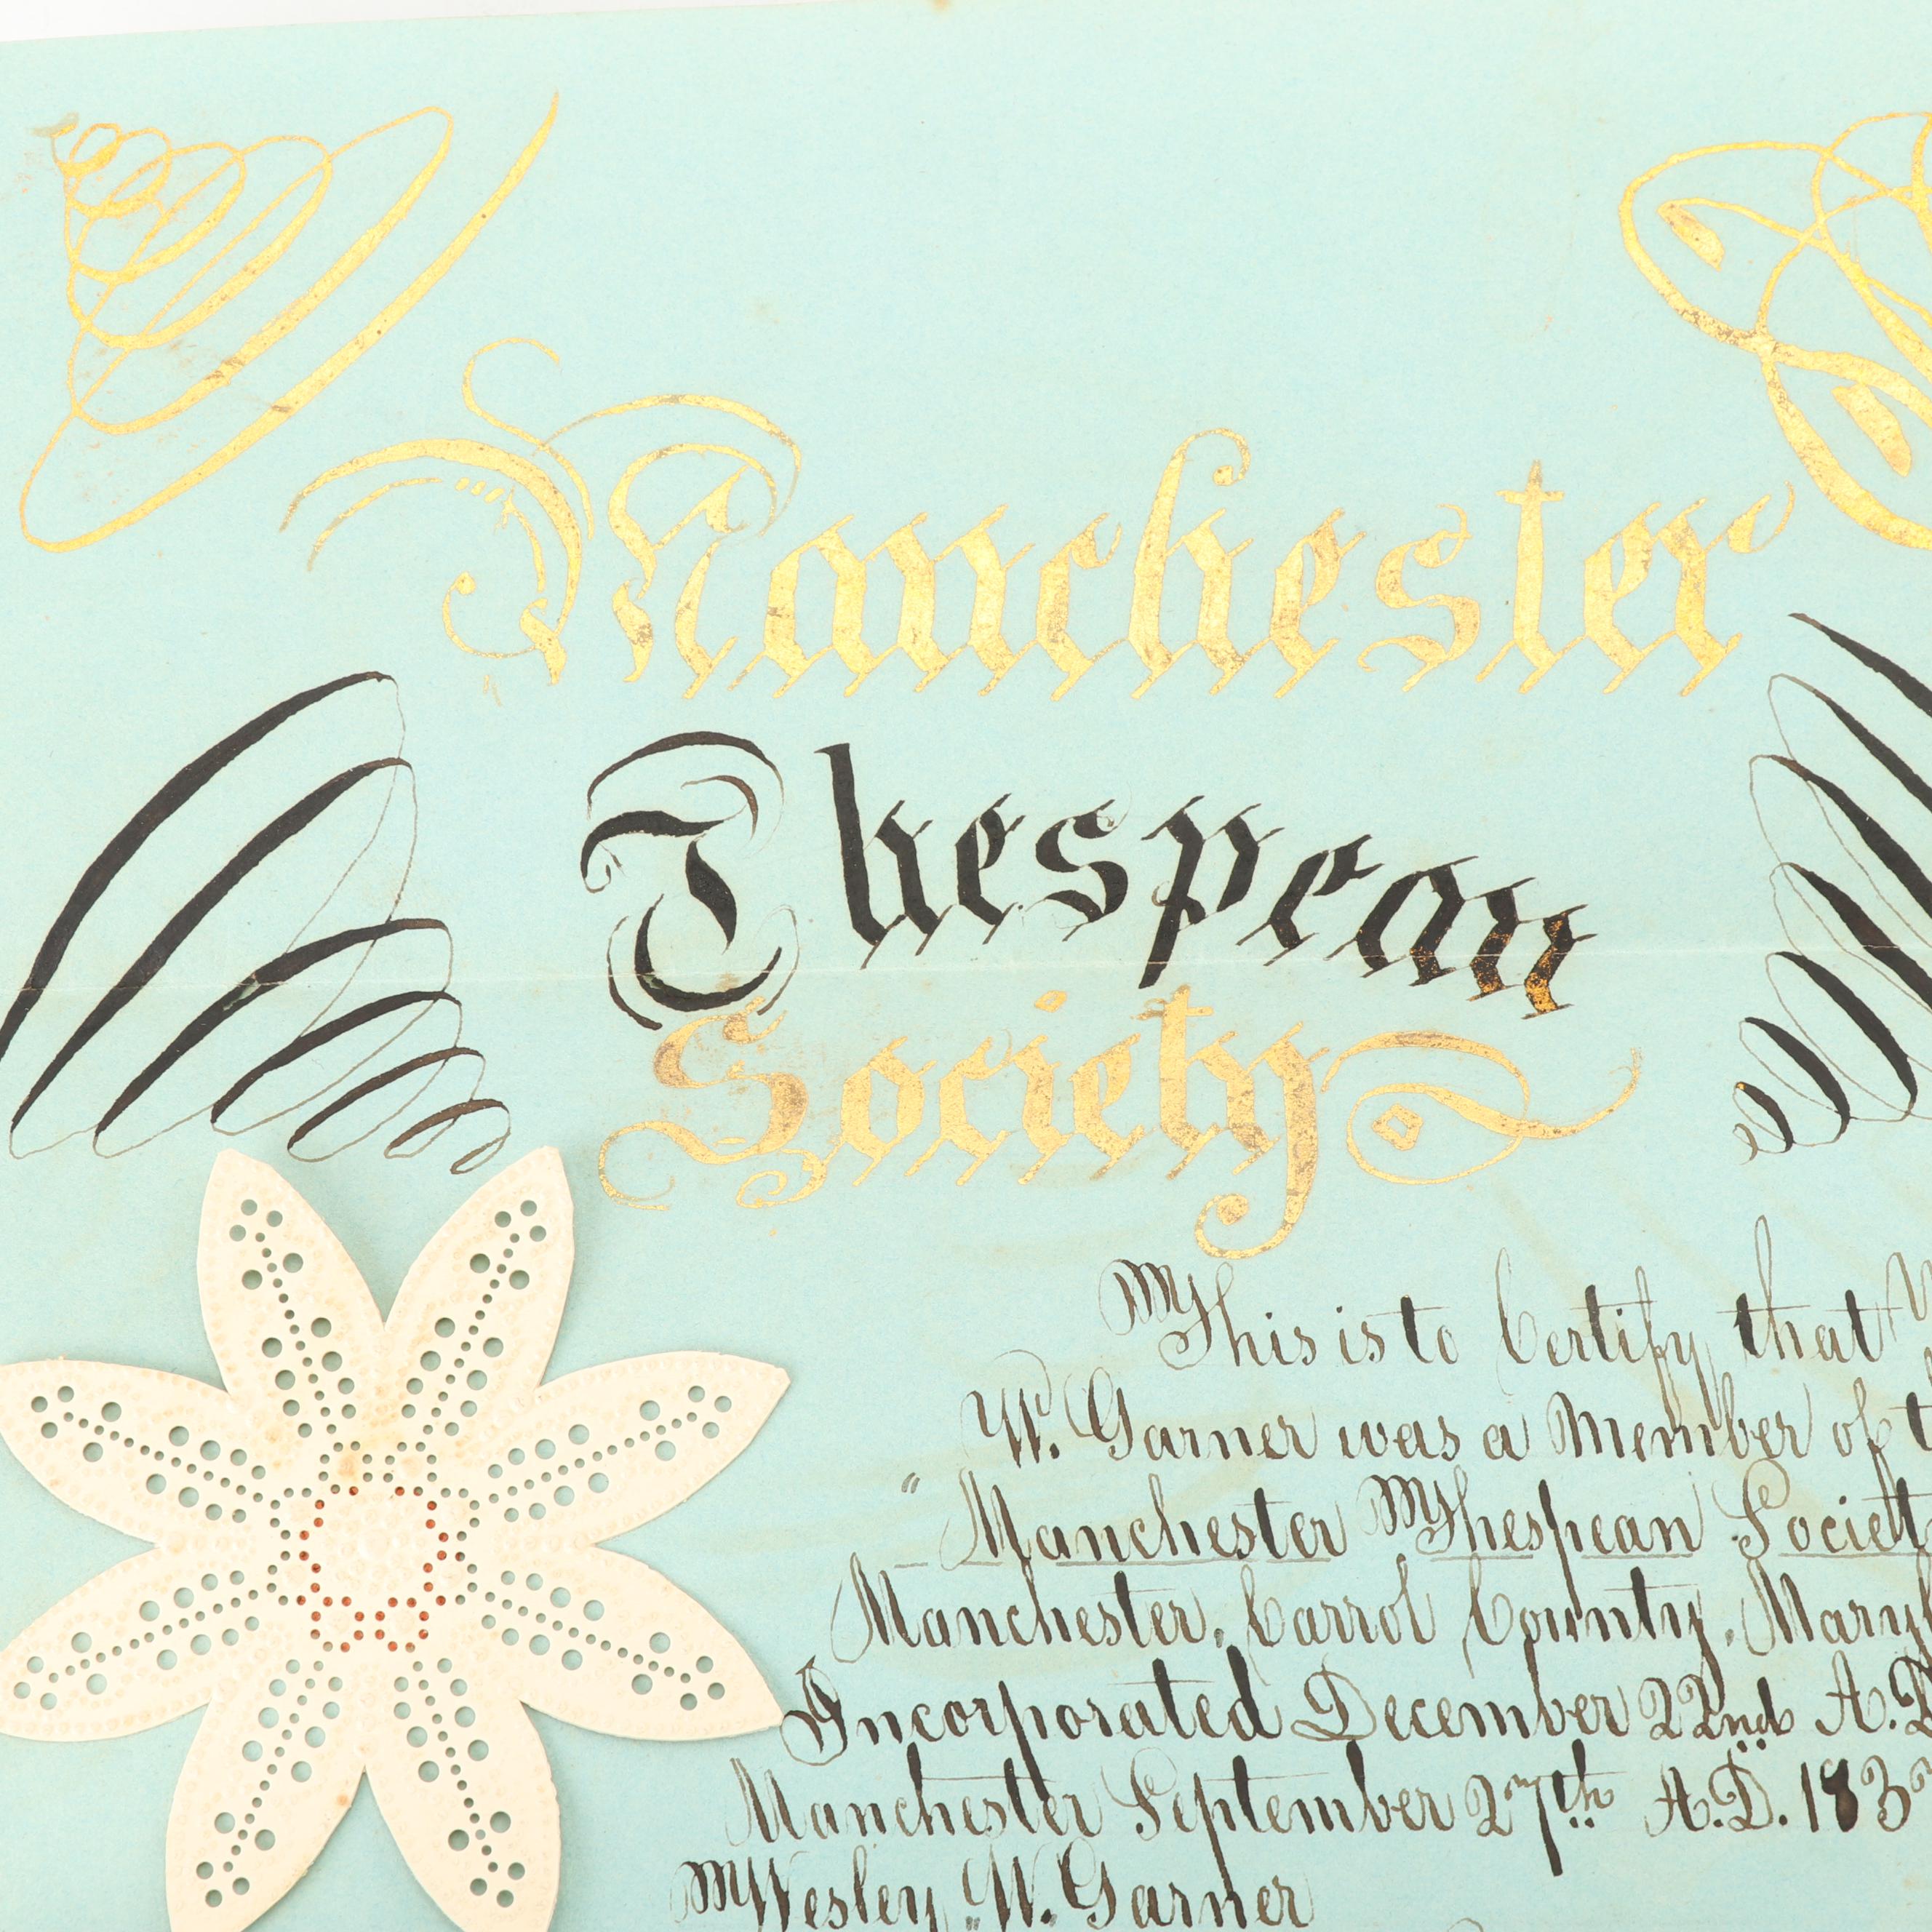 Manchester
Thespean
Society
This is to Certify that
W. Garner was a Member of
"Manchester Thespean Societ
Manchester, Carrol County, Mary
Incorporated December 22nd A.D
Manchester September 27th A.D. 183
Wesley W. Garner